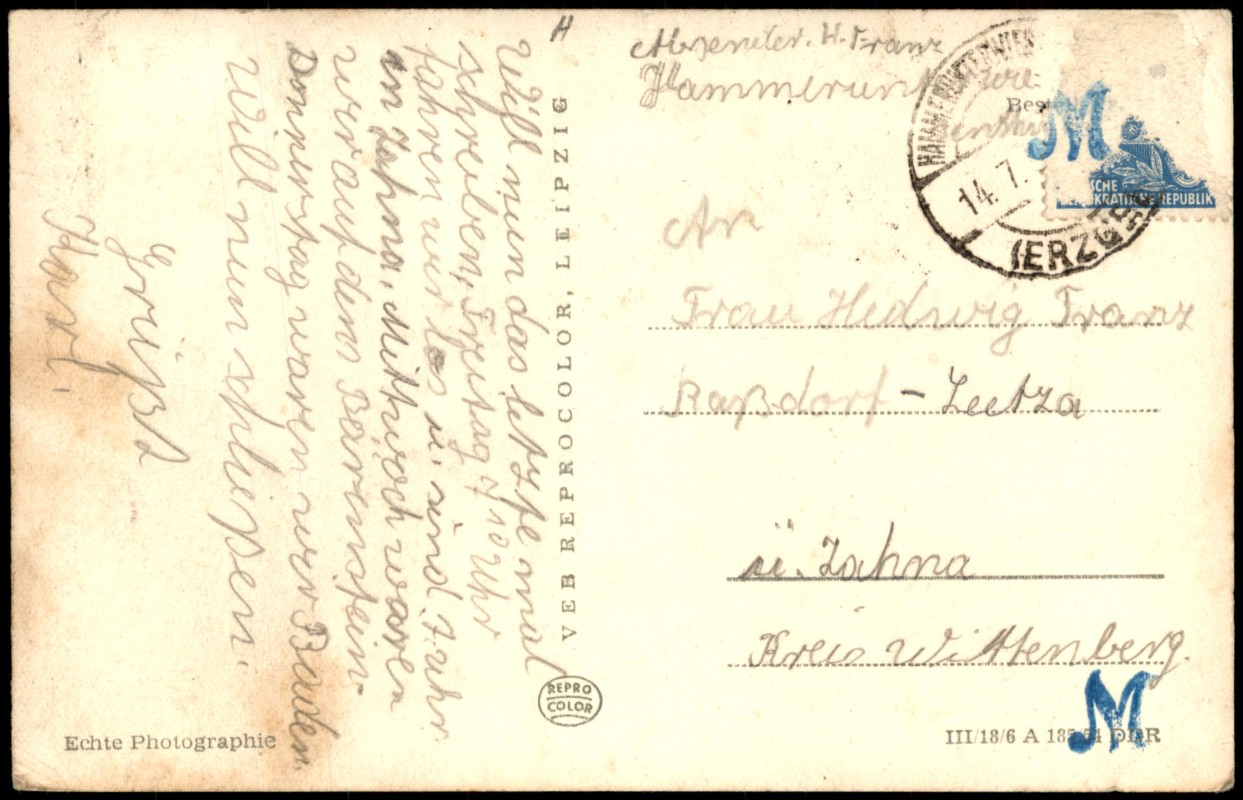 H
Will nun das letzte mal
schreiben, Freitag 7 10 Uhr
fahren wir los u. sind 7. uhr
in Zahna, Mittwoch waren
wir auf dem Bärenstein.
Donnerstag waren wir Baden.
Will nun schließen.
Grüßd
Karl.
VEB REPROCOLOR, LEIPZIG
REPRO
COLOR
Echte Photographie
Absender. H. Franz
HAMMERUNTERWIESEN
14. 7.
(ERZGEB)
DEUTSCHE
DEMOKRATISCHE REPUBLIK
M
An
Frau Hedwig Franz
Raßdorf - Leetza
ü. Zahna
Kreis Wittenberg.
III/18/6 A DDR
M